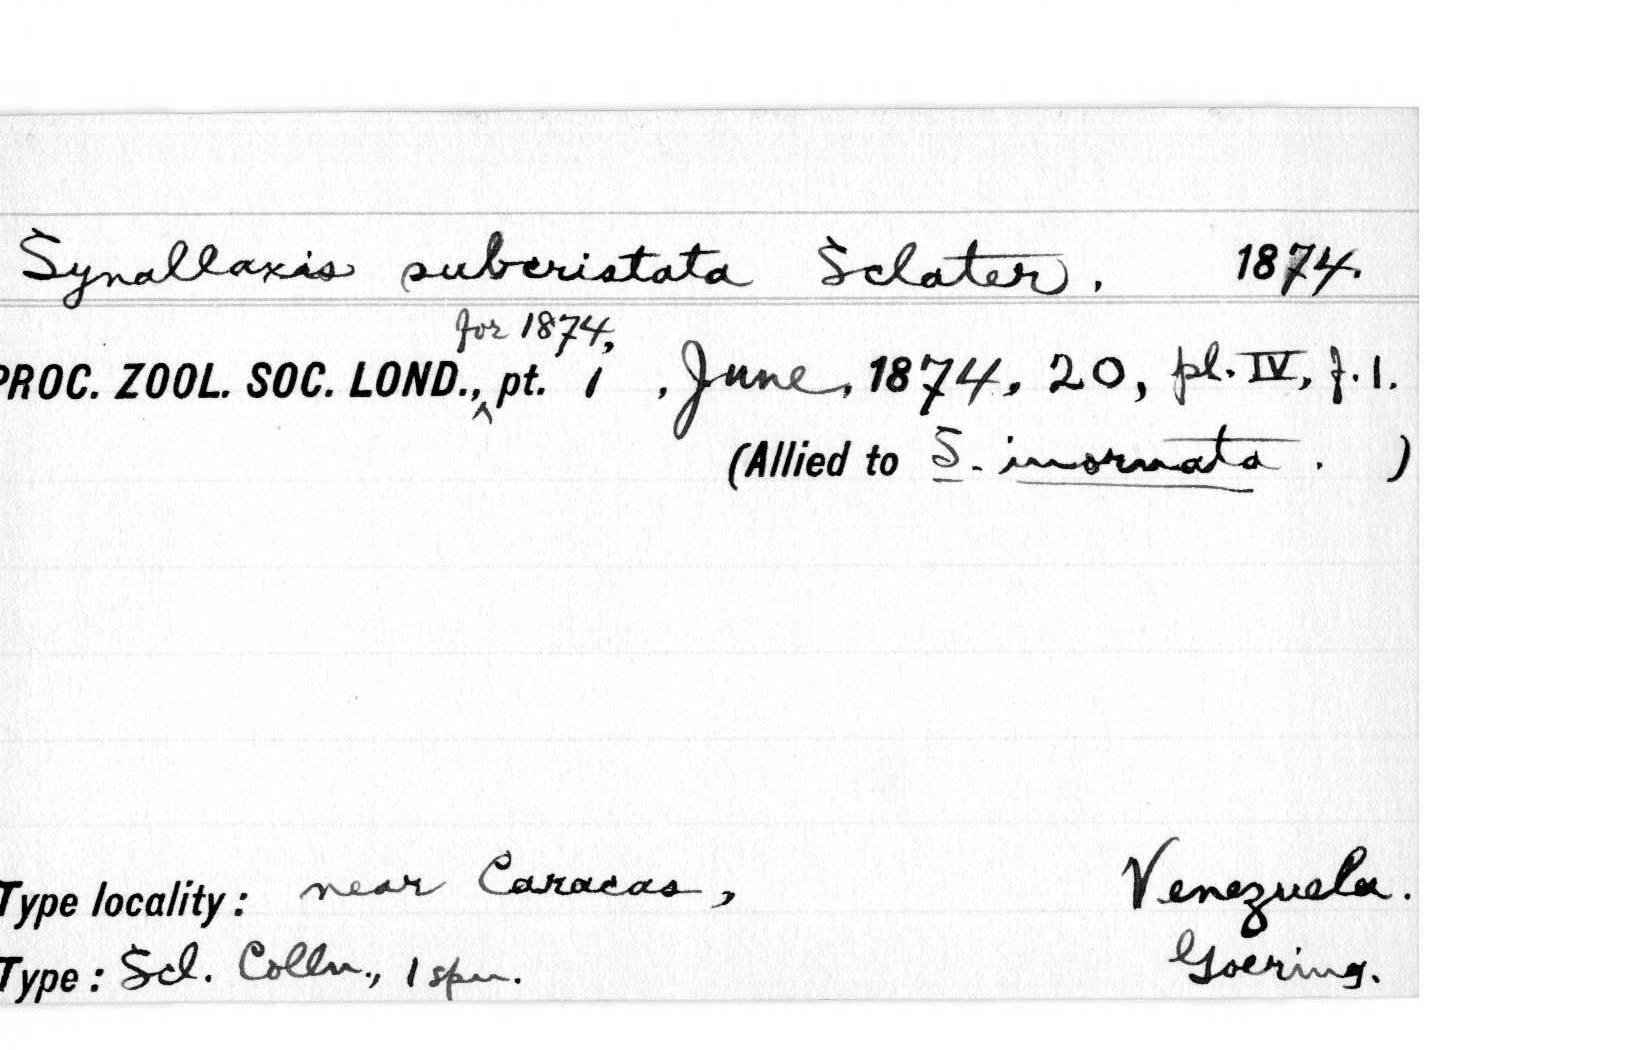 Synallaxis subcristata Sclater. 1874.
for 1874,
PROC. ZOOL. SOC. LOND.,^ pt. 1 , June, 1874, 20, pl. IV, f. 1.
(Allied to S. inornata . )
Type locality: near Caracas, Venezuela.
Type: Scl. Colln., 1 spn. Goering.